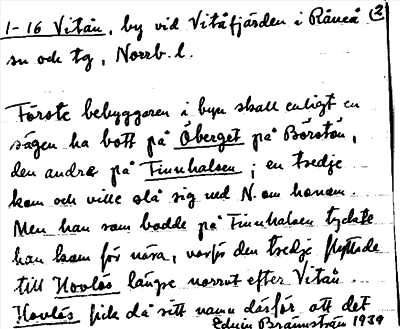 1-16 Vitån, by vid Vitåfjärden i Råneå (3)
sn och tg, Norrb. l.
Förste bebyggaren i byn skall enligt en
sägen ha bott på Öberget på Börstön,
den andra på Finnhalsen; en tredje
kom och ville slå sig ned N. om honom.
Men han som bodde på Finnhalsen tyckte
han kom för nära, varför den tredje flyttade
till Hovlös längre norrut efter Vitån.
Hovlös fick då sitt namn därför att det
Edvin Brännström 1939